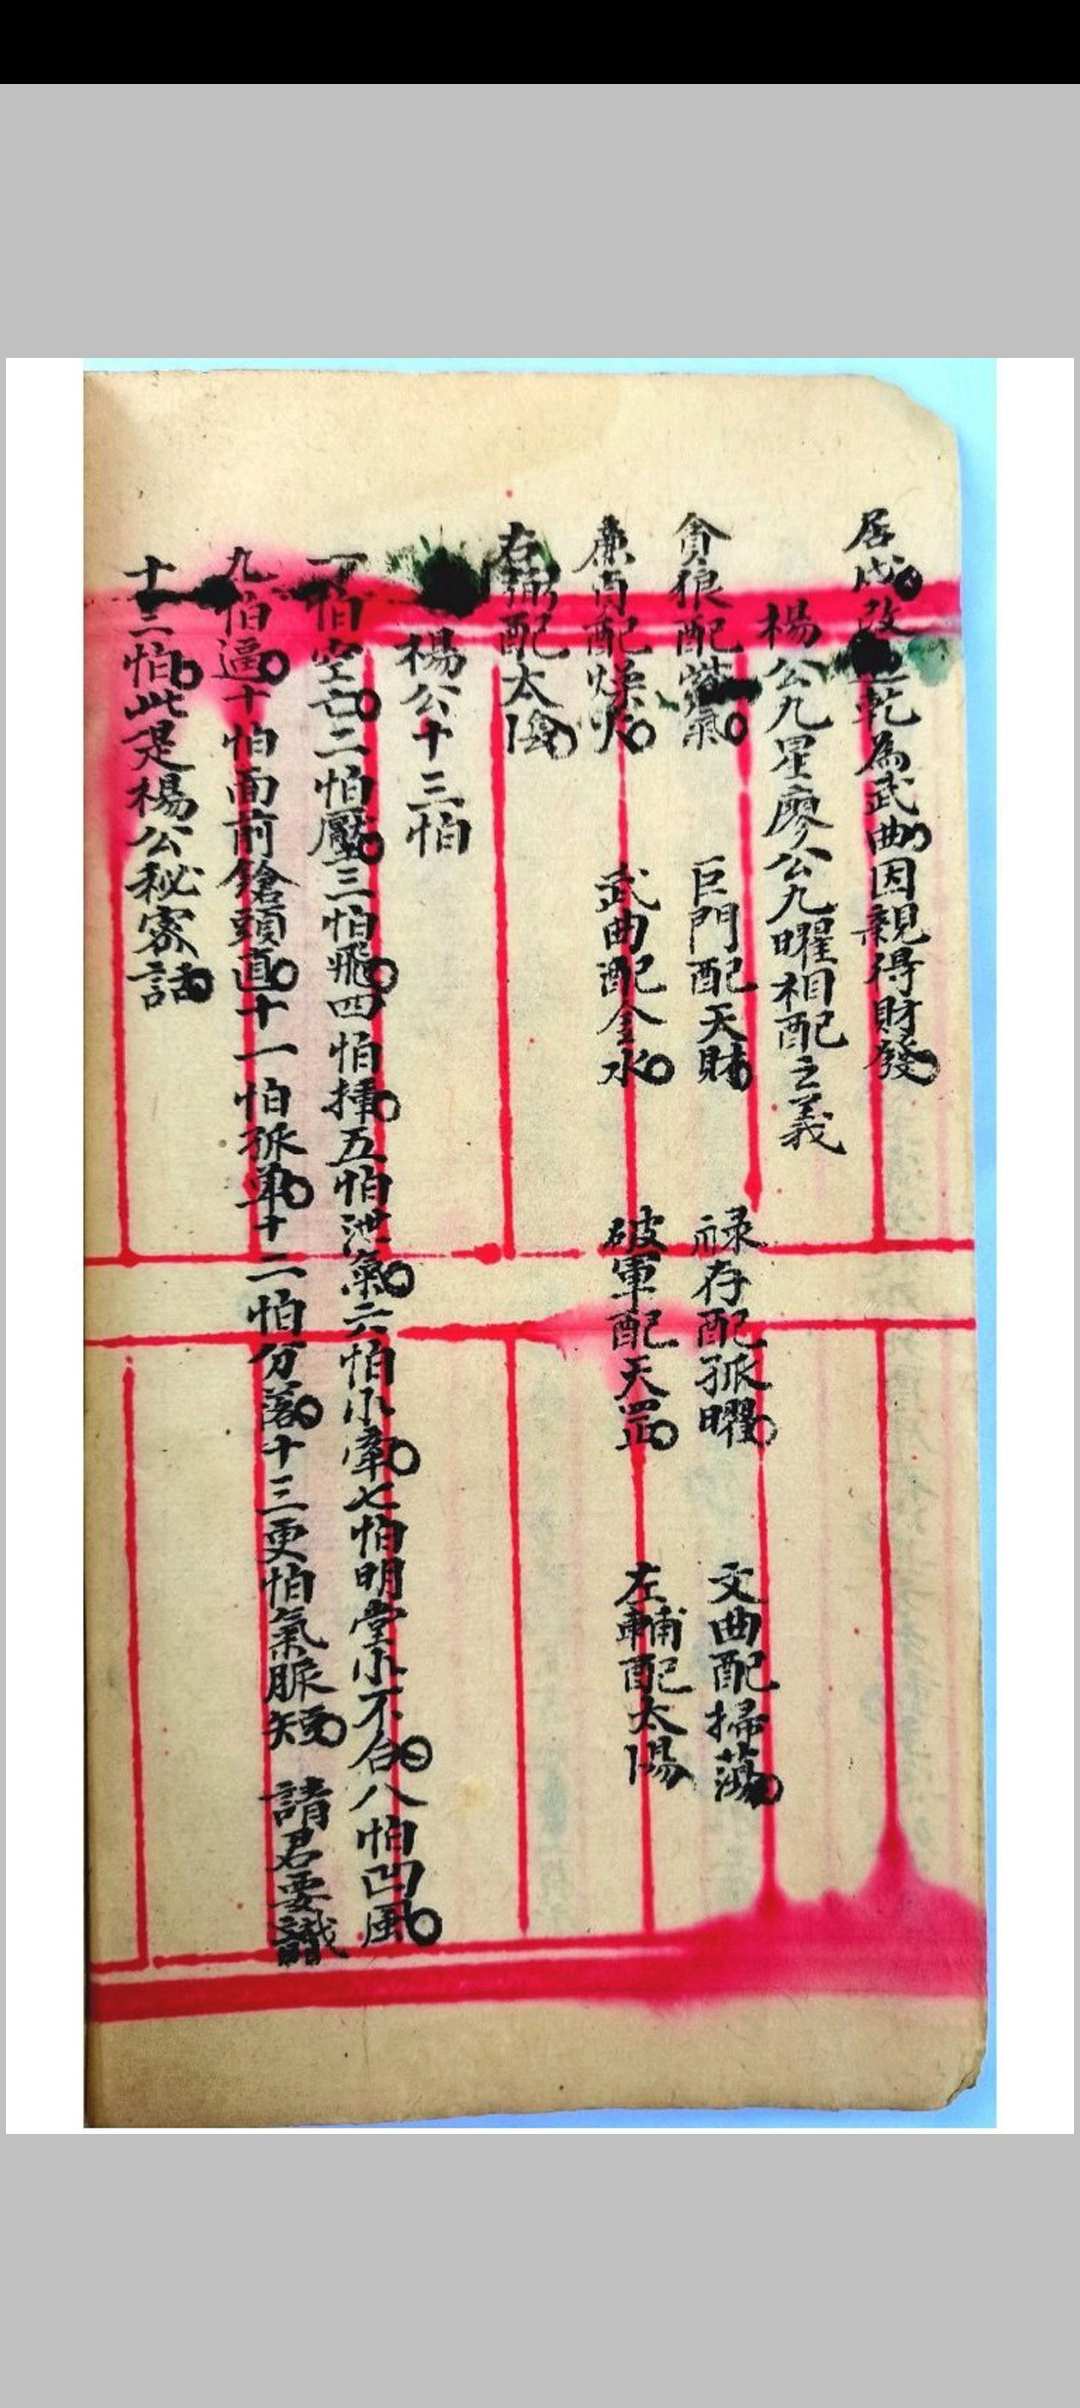 居戌改乾為武曲因親得財發
楊公九星廖公九曜相配之義
貪狼配紫氣 巨門配天財 祿存配孤曜 文曲配掃蕩
廉貞配燥火 武曲配金水 破軍配天罡 左輔配太陽
右弼配太陰
楊公十三怕
一怕空亡二怕壓三怕飛四怕揷五怕泄氣六怕小窄七怕明堂小不合八怕凹風
九怕逼十怕面前鎗頭直十一怕孤單十二怕分落十三更怕氣脈短 請君要識
十三怕此是楊公秘密話